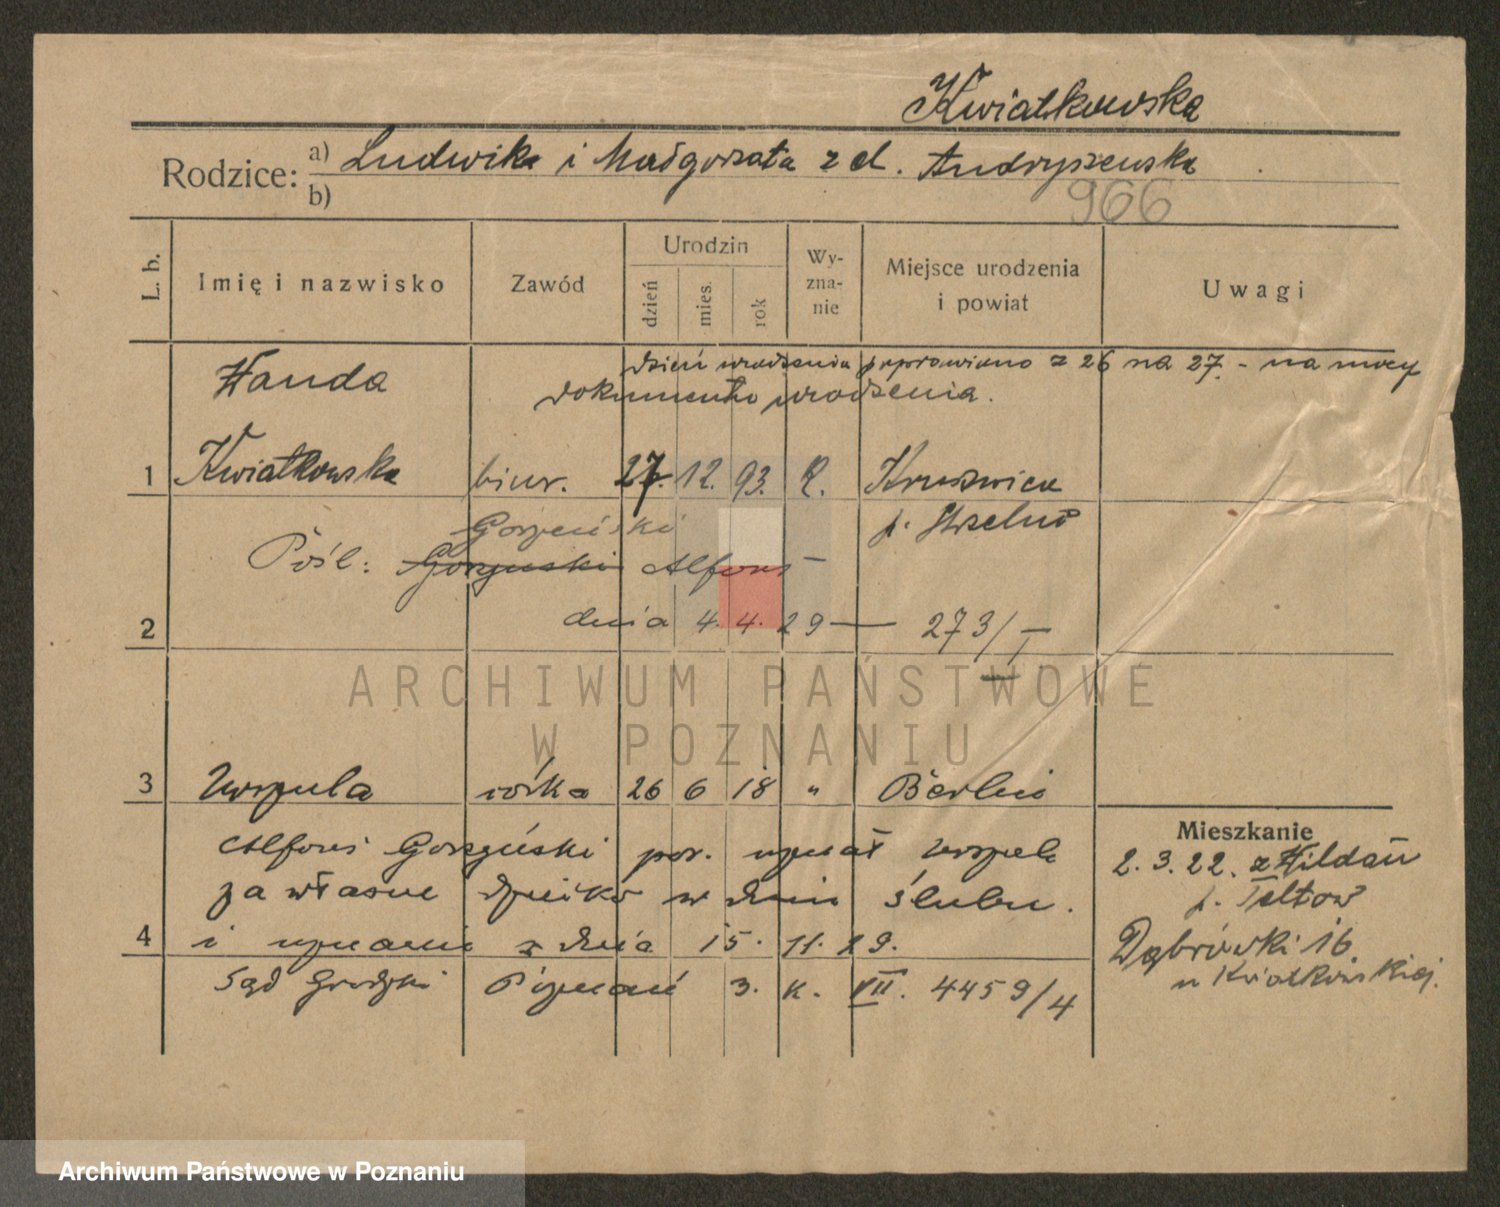 Kwiatkowska
Rodzice: a) Ludwika i Małgorzata z d. Andryszewska
b)
966
L. b. Imię i nazwisko Zawód Urodzin dzień mies. rok Wy-zna-nie Miejsce urodzenia i powiat Uwagi
dzień urodzenia poprawiono z 26 na 27. - na mocy
dokumentu urodzenia.
Wanda
1 Kwiatkowska biur. 27. 12. 93. R. Kruszwica
p. Strzelno
Gorzeński
Pośl: Gorzeński Alfons
2 dnia 4. 4. 29 — 273/I
ARCHIWUM PAŃSTWOWE
W POZNANIU
3 Urszula córka 26 6 18 " Berlin
Mieszkanie
Alfons Gorzeński por. uznał Urszulę
2. 3. 22. z Wildau
p. Teltow
za własne dziecko w dniu ślubu.
4 i uznanie z dnia 15. 11. 29.
Dąbrówki 16.
u Kwiatkowskiej.
Sąd Grodzki Poznań 3. K. VII. 4459/4
Archiwum Państwowe w Poznaniu